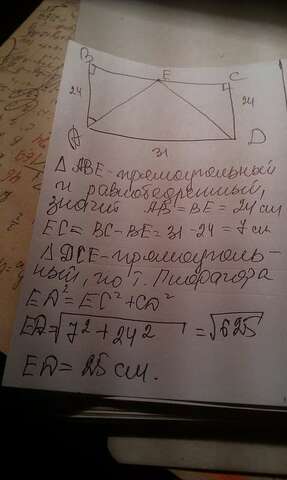 B E C
24 24
A D
31
△ ABE - прямоугольный
и равнобедренный,
значит AB = BE = 24 см
EC = BC - BE = 31 - 24 = 7 см
△ DCE - прямоуголь-
ный, по т. Пифагора
ED² = EC² + CD²
ED = √7² + 24² = √625
ED = 25 см.